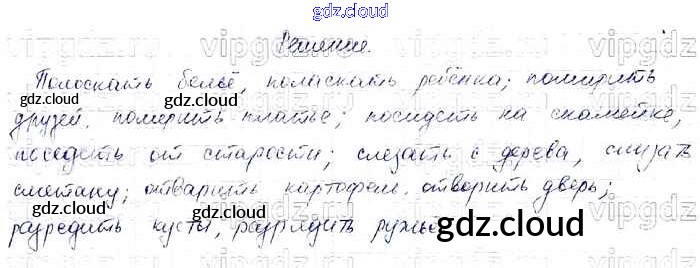 gdz.cloud
Решение.
Полоскать бельё, поласкать ребёнка; помирить
gdz.cloud gdz.cloud
друзей, померить платье; посидеть на скамейке,
поседеть от старости; слезать с дерева, слизать
сметану; отварить картофель, отворить дверь;
gdz.cloud gdz.cloud
разредить кусты, разрядить ружьё
gdz.cloud